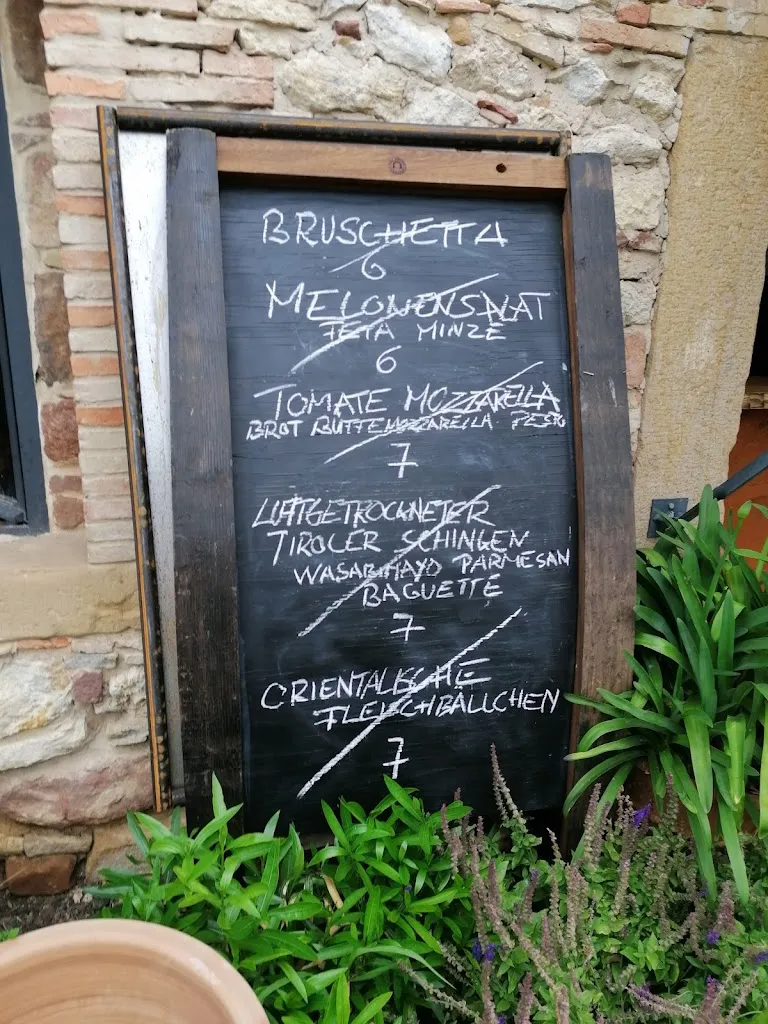 BRUSCHETTA
6
MELONENSALAT
FETA MINZE
6
TOMATE MOZZARELLA
BROT BUTTE MOZZARELLA PESTO
7
LUFTGETROCKNETER
TIROLER SCHINKEN
WASABIMAYO PARMESAN
BAGUETTE
7
ORIENTALISCHE
FLEISCHBÄLLCHEN
7